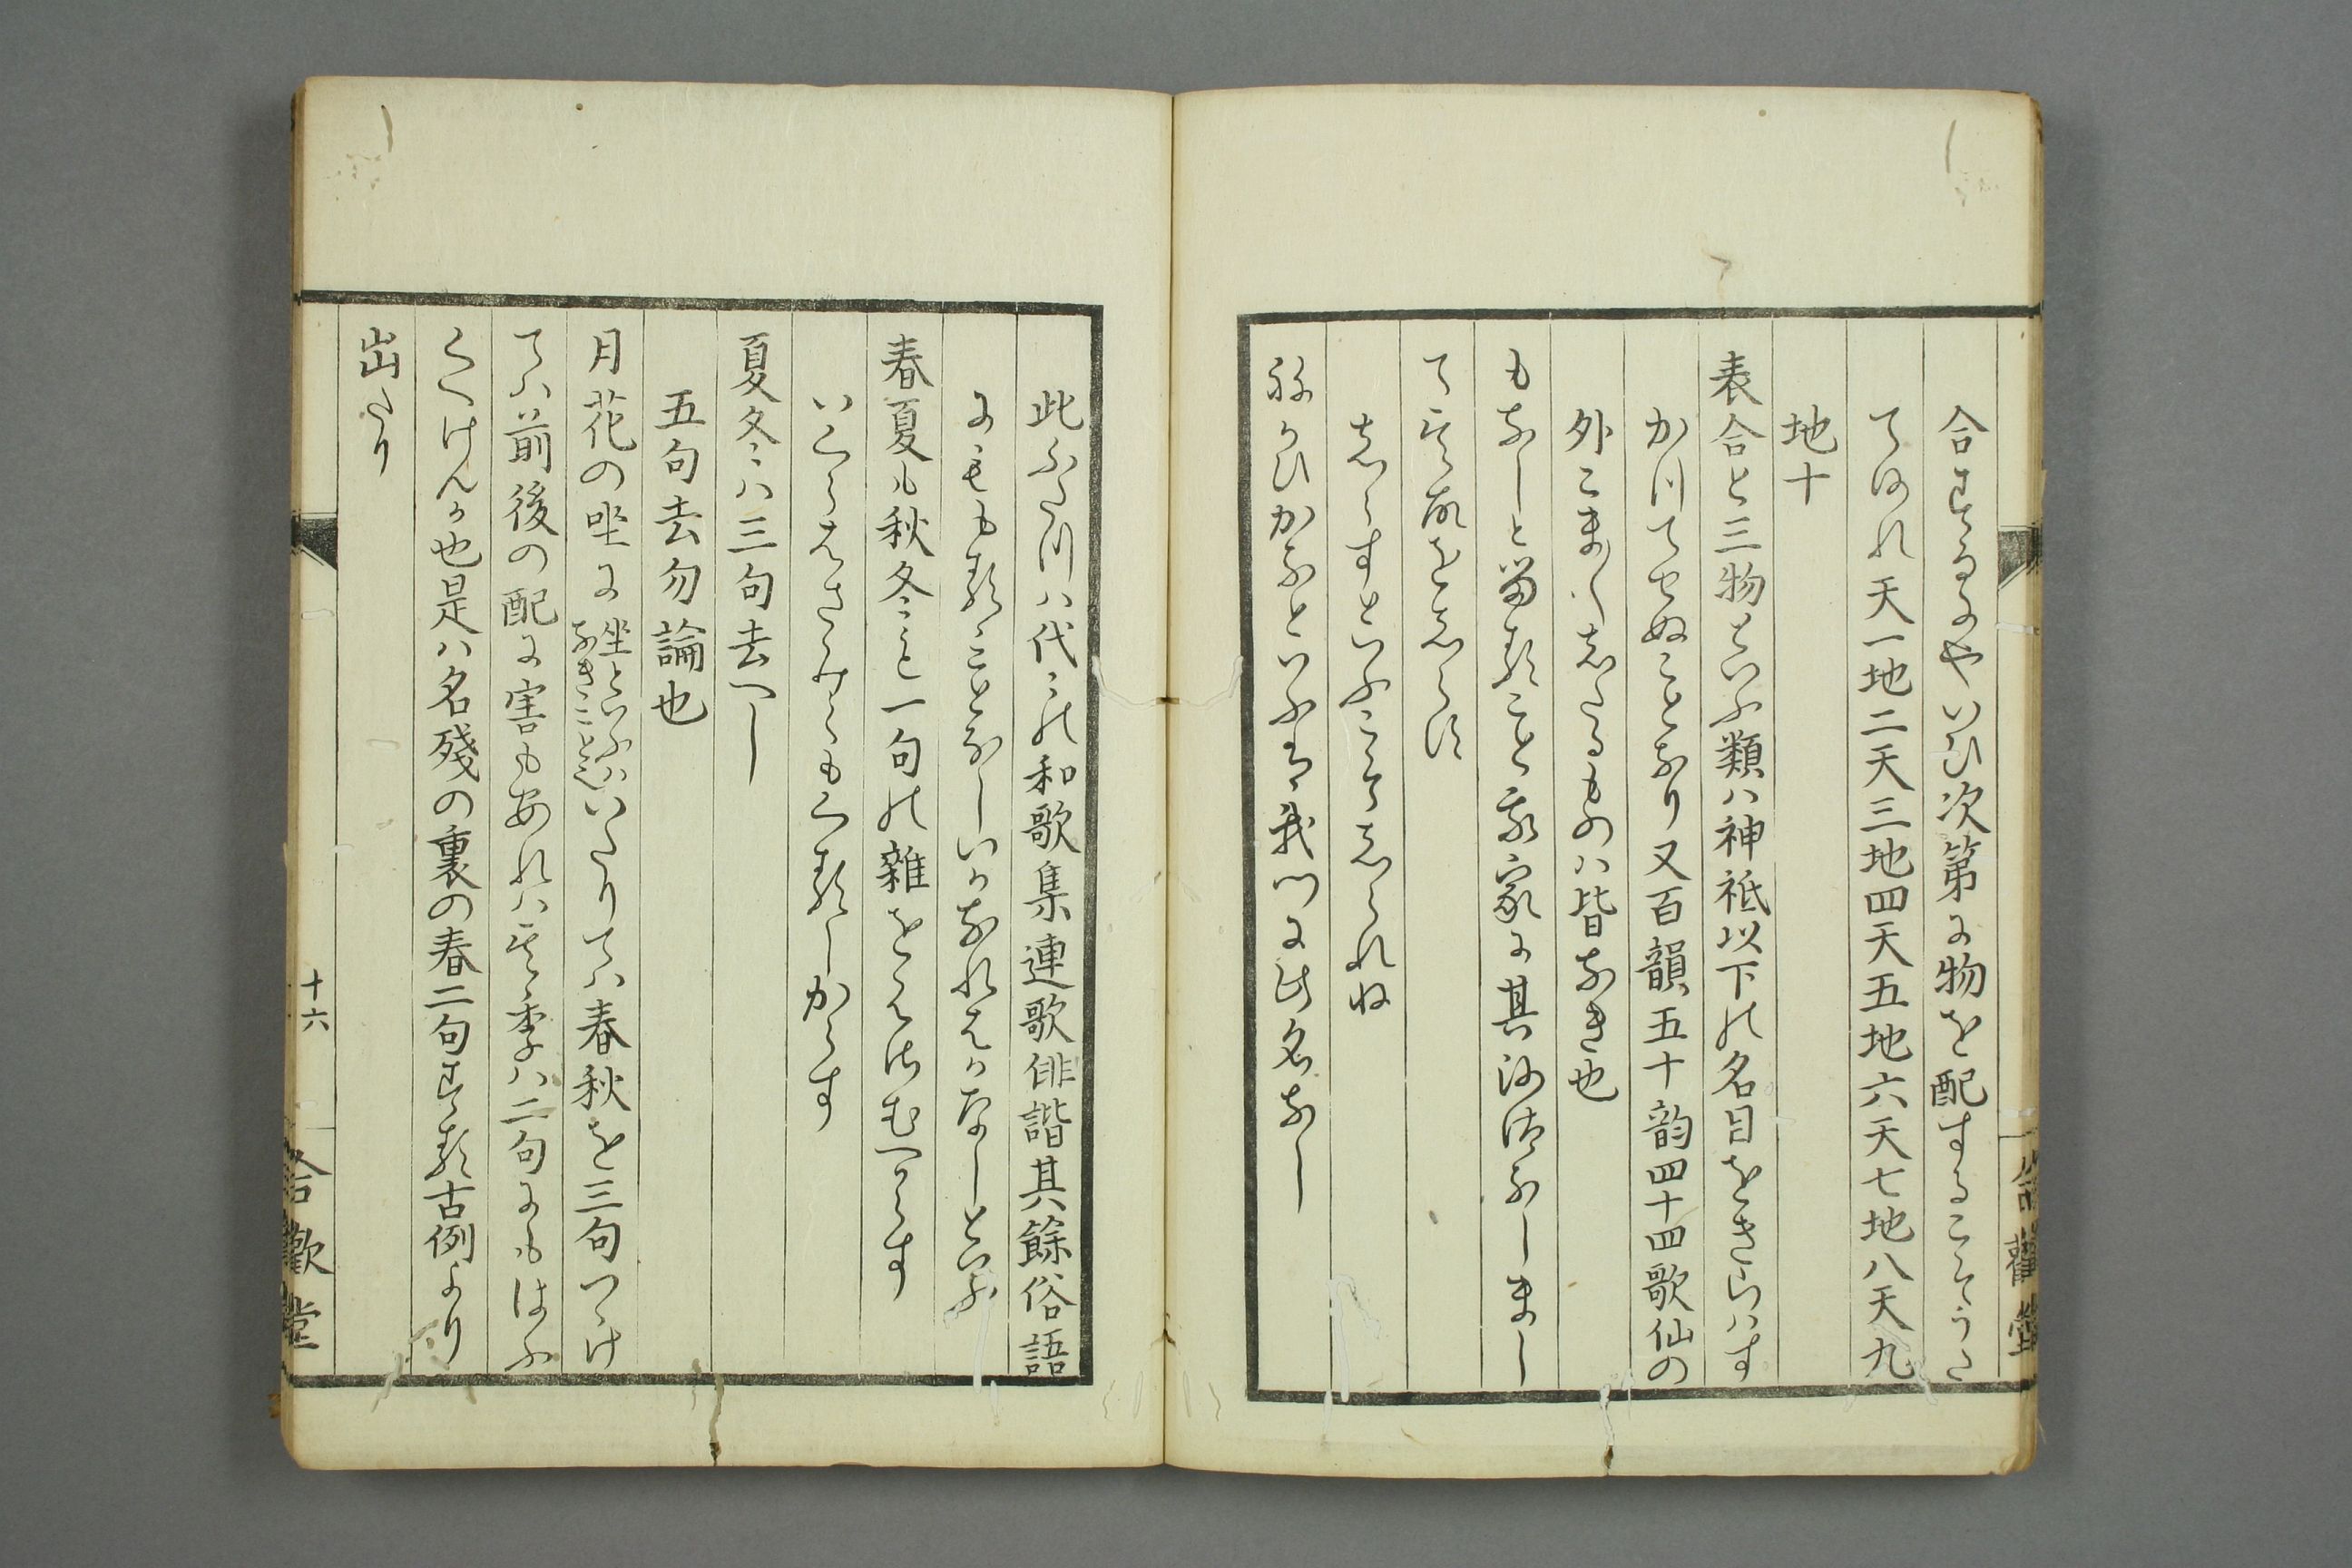 合するにやいひ次第に物を配することそうた
てぬれ天一地二天三地四天五地六天七地八天九
地十
表合と三物といふ類ハ神祇以下の名目をきらハす
か川てせぬことなり又百韻五十韵四十四歌仙の
外こま〳〵志たるものハ皆なき也
もなしと留ることゝ我家に其沙汰なしまし
て
志らすといふこゝろ志られね
ねかひかなといふハ我門に此名なし
此ふた川ハ代ミの和歌集連歌俳諧其餘俗語
にミもあることなしいかなれはかなしといふ
春夏も秋冬ミと一句の雜をはさむへからす
いくらはさみてもくるしからす
夏冬ミハ三句去へし
五句去勿論也
月花の坐に坐といふハなきこと也いたりてハ春秋を三句つゝけ
てハ前後の配に害もあれハ其季ハ二句にもはふ
くへけんか也是ハ名殘の裏の春二句する古例より
出たり
十六
合歡堂